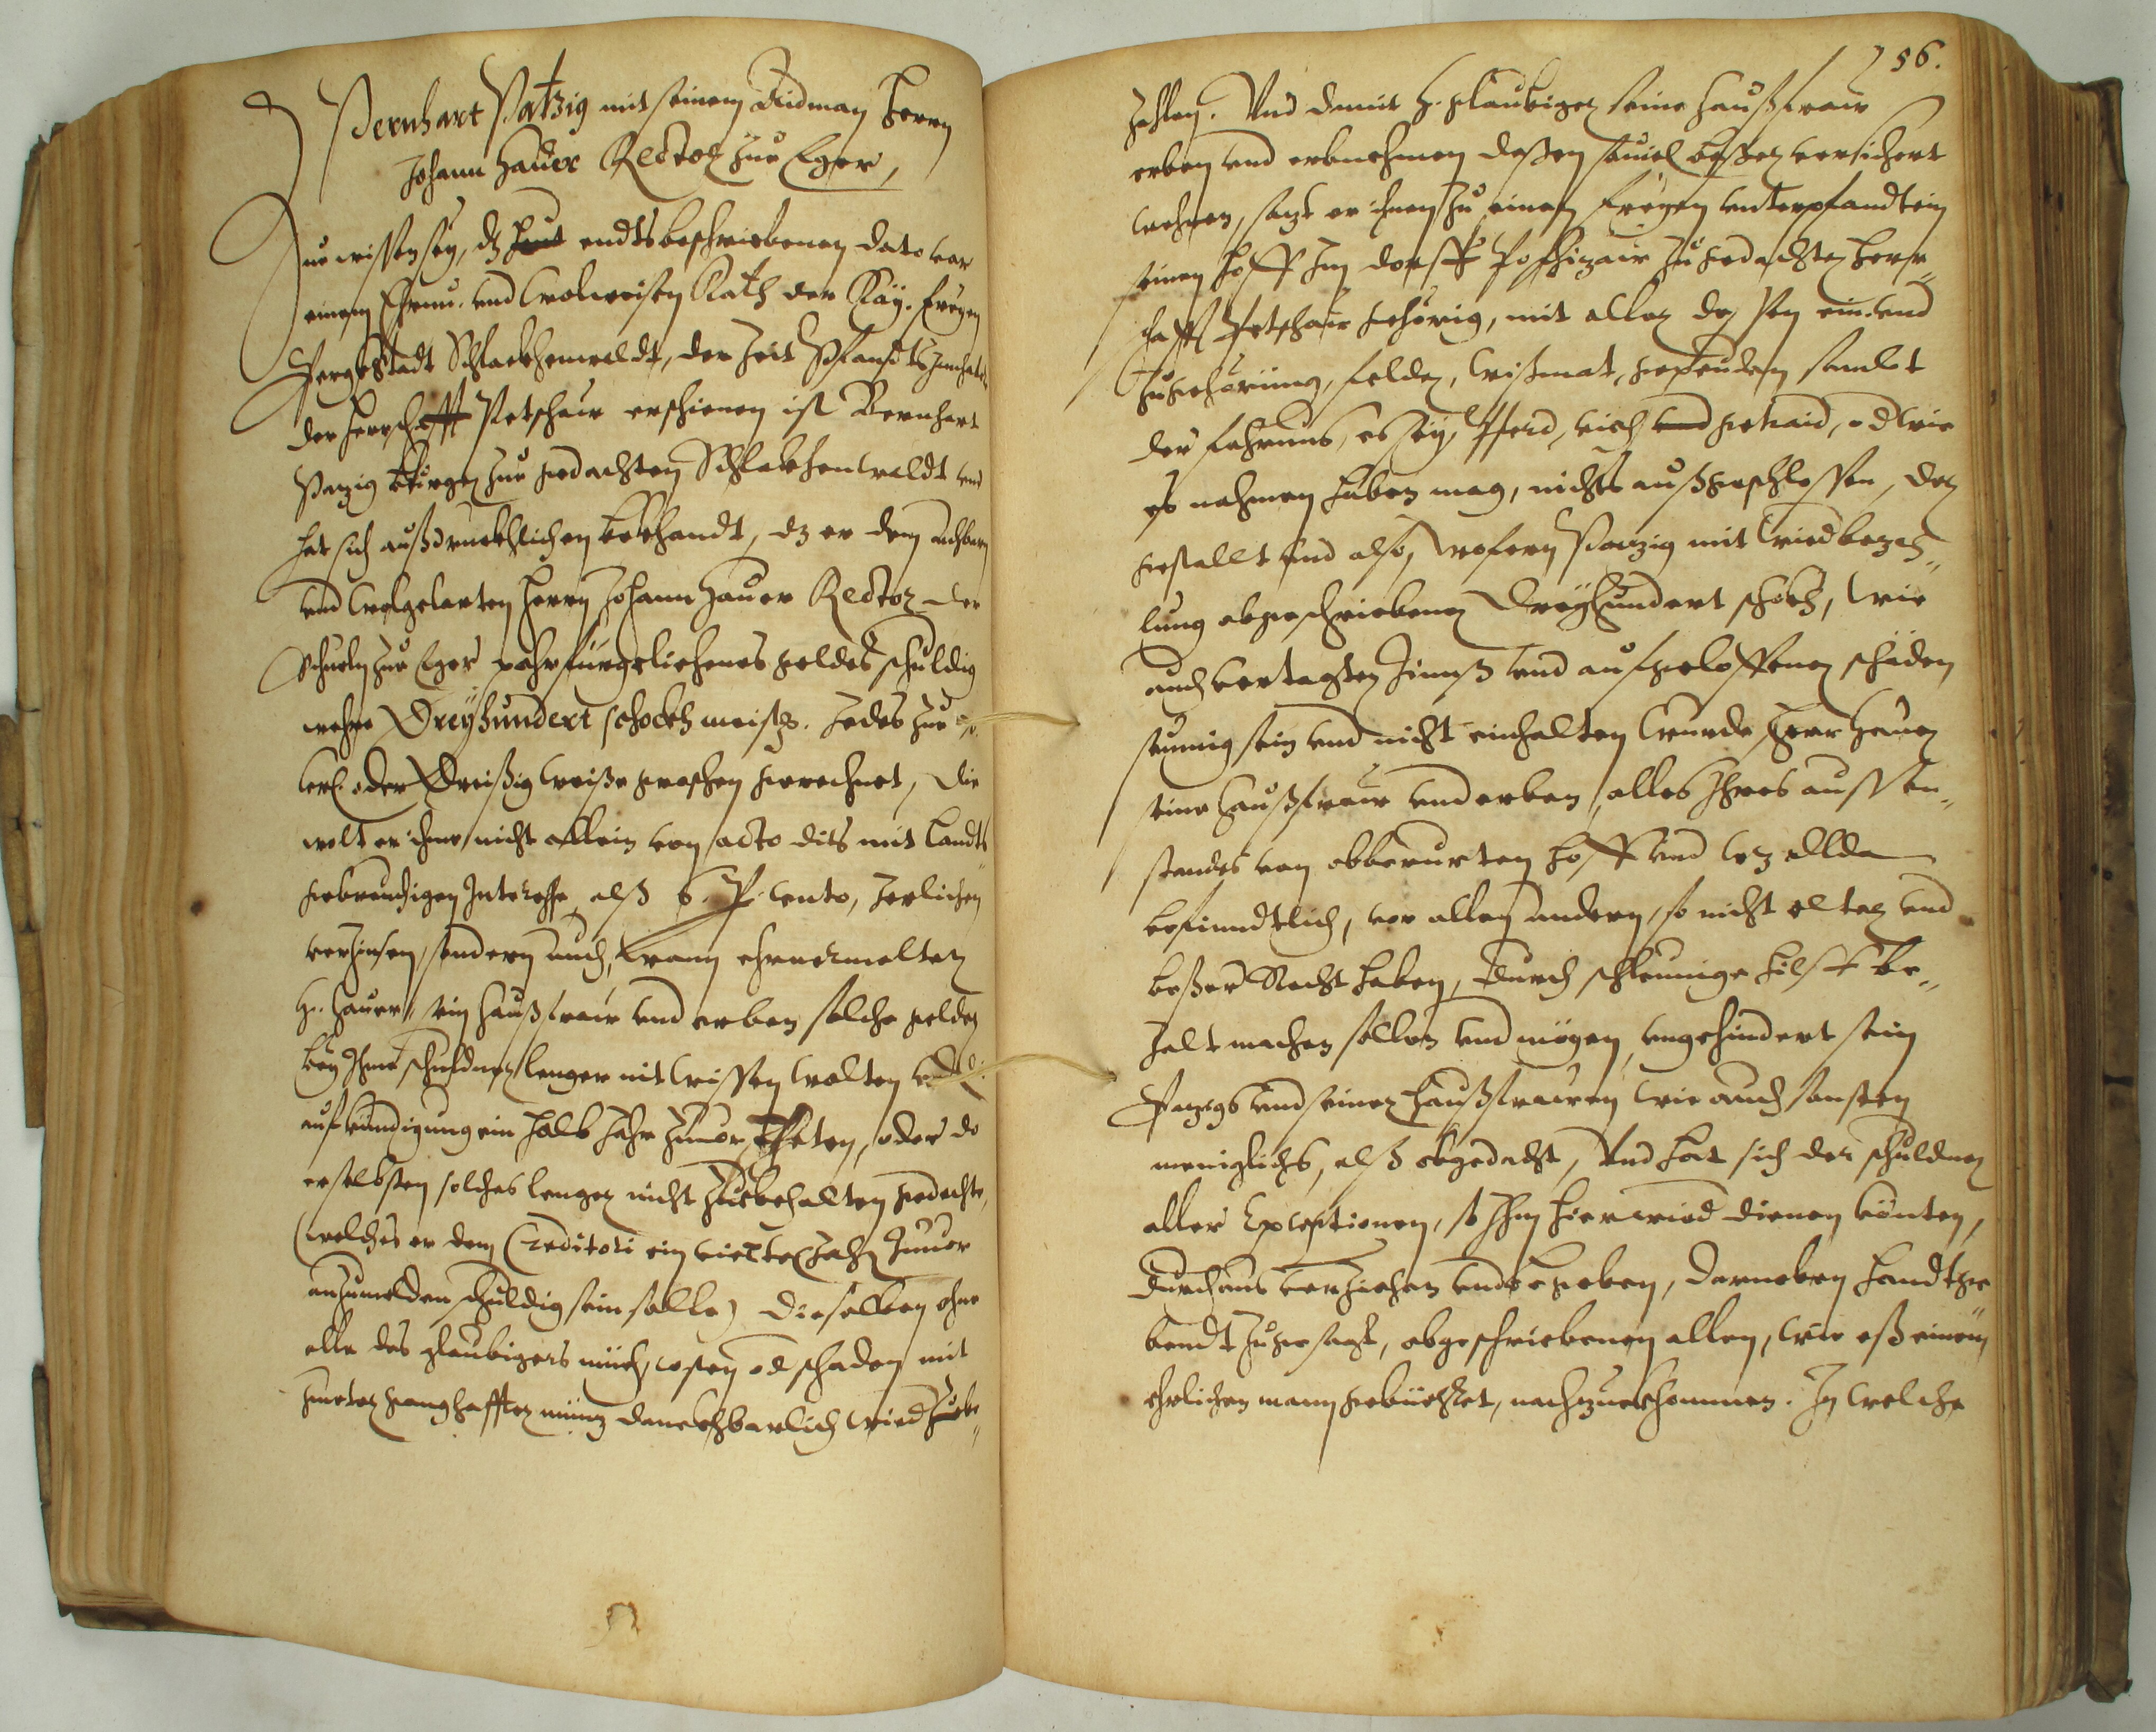 Bernhart Patzig mit seinem Aidman Herrn
Johann Hauer Rector zur Eger,
Zue wissen sey, dz heut endtsbeschriebenen dato vor
einem Ehrnu. und Wolweisen Rath der Kay. freyen
Bergkstadt Schlackhenwaldt, der Zeit Pfandts Innhaber
der Herrschafft Petschaw erschienen ist Bernhart
Pazig bürger zue gedachten Schlakhenwaldt und
hat sich außdrucklichen bekhandt, dz er dem achbarn
und Wolgelarten Herrn Johann Hauer Rector der
Schuelen zur Eger pahr fürgeliehenes geldes schuldig
wehre Dreyhundert schockh meisß. Jedes zue
oder Dreißig weiße groschen gerechnet, die
wolt er ihme nicht allein von acto dits mit Landts
gebreuchigen Interesse, alß 6. P. cento, Jerlichen
verzinsen, sondern auch, wann ehrnermelter
H. Hauer, sein haußfraw und erben solche gelder
bey Ihme schuldner lenger nit wissen wolten
aufkündigung ein halb Jahr zuuor theten, oder do
er selbsten solches lenger nicht zubehalten gedechte,
(welches er dem Creditori ein viertel Jahr zuuor
anzumelden schuldig sein solle) dieselben ohne
alle des glaubigers müeh, costen od schaden mit
gueter ganghaffter münz danckhbarlich wied zube„
156.
zahlen. Und damit H. glaubiger seine haußfraw
erben und erbnehmen deßen souiel beßer versichert
wehren, sazt er ihnen zu einem freyen unterpfandt ein
seinen hoff Im dorff Poschizaw zu gedachter Herr„
schafft Petschaw gehörig, mit aller dessen ein und
zugehörung, felder, wißmat, gepeuden sambt
der fahrnus, es sey, Pferd, vieh und getraid, od wie
es nahmen haben mag, nichts außgeschlossen, der
gestallt und also, wofern Pazig mit wiedbezah„
lung obgeschriebener Dreyhundert schockh, wie
auch vertagten Zinnß und aufgeloffenen schäden
seumig sein und nicht einhalten wurde Herr Hauer
seine haußfraw und erben, alles Ihres aussen„
standes von obberurten hoff und wz allda
befinndtlich, vor allen andern, so nicht elter und
beßer Recht haben, durch schleunige hilff be„
zalt machen sollen und mögen, ungehindert sein
Pazigs und seiner haußfrawen wie auch sonsten
meniglichs, alß obgedacht, Und hat sich der schuldner
aller Exceptionen, so Ihm hierwied dienen könten,
durchaus verziehen und begeben, darneben handtge
bendt zugesagt, obgeschriebenen allen, wie eß einem
ehrlichen mann gebüehret, nachzukhommen. In welche